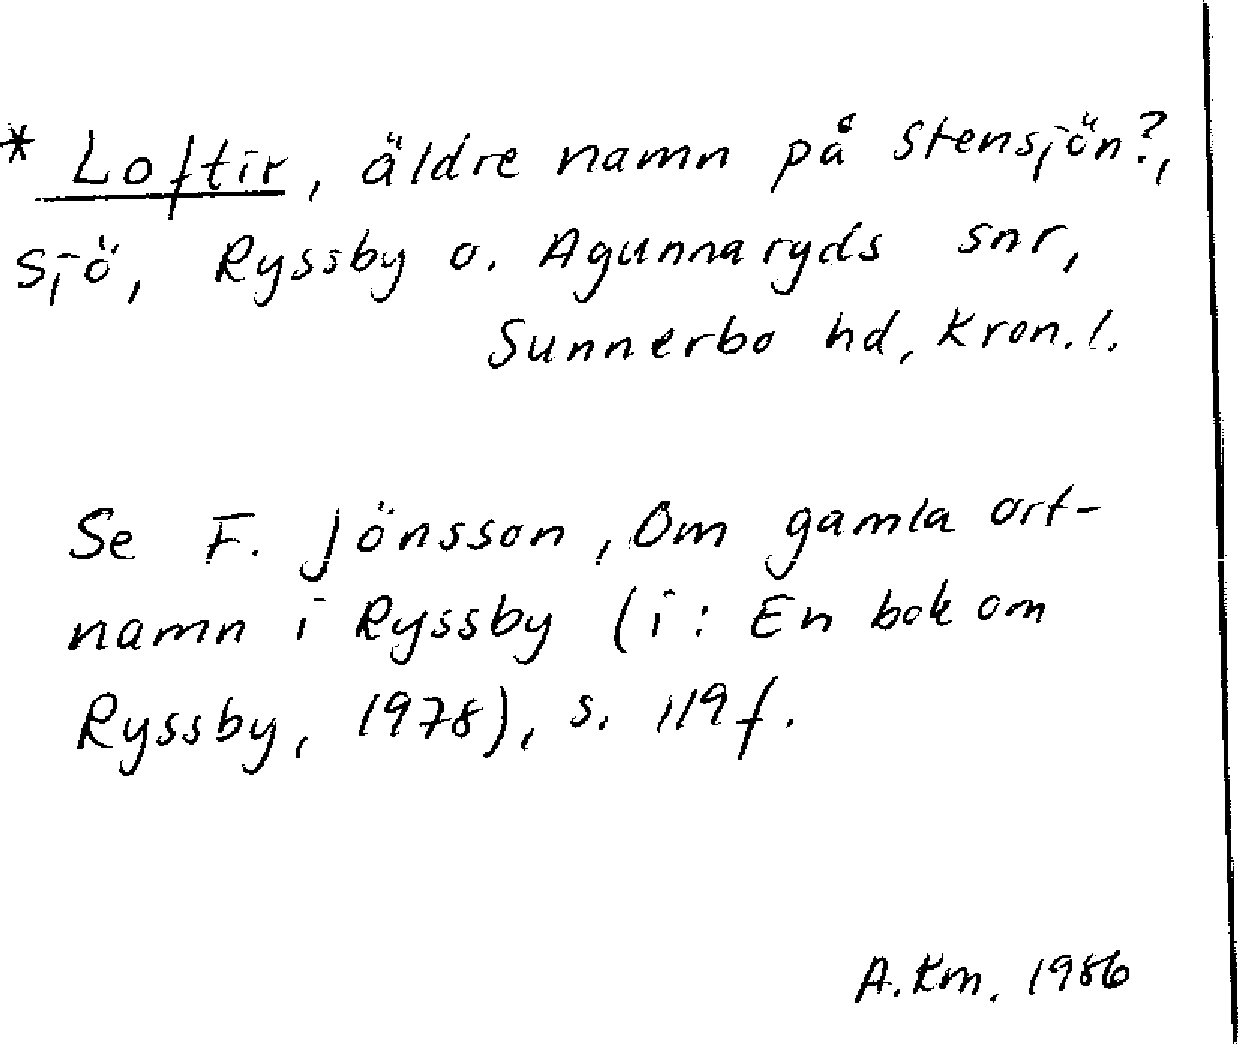 * Loftir, äldre namn på Stensjön?,
sjö, Ryssby o. Agunnaryds snr,
Sunnerbo hd, Kron.l.
Se F. Jönsson, Om gamla ort-
namn i Ryssby (i: En bok om
Ryssby, 1978), s. 119f.
A.Km. 1986